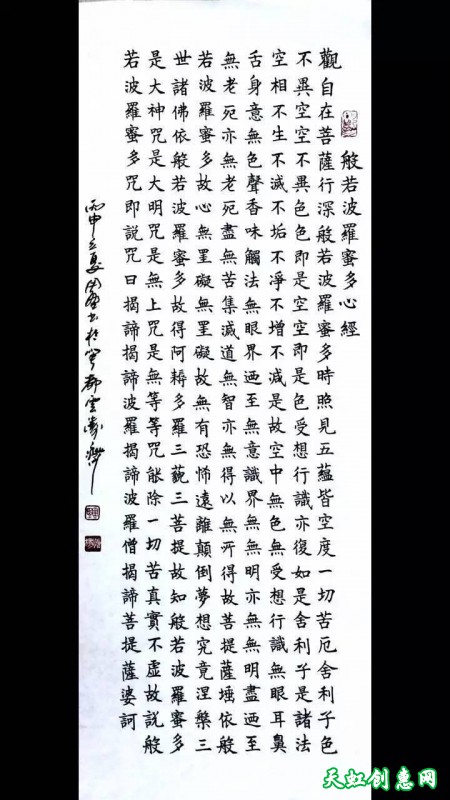 般若波羅蜜多心經
觀自在菩薩行深般若波羅蜜多時照見五蘊皆空度一切苦厄舍利子色
不異空空不異色色即是空空即是色受想行識亦復如是舍利子是諸法
空相不生不滅不垢不淨不增不減是故空中無色無受想行識無眼耳鼻
舌身意無色聲香味觸法無眼界迺至無意識界無無明亦無無明盡迺至
無老死亦無老死盡無苦集滅道無智亦無得以無所得故菩提薩埵依般
若波羅蜜多故心無罣礙無罣礙故無有恐怖遠離顛倒夢想究竟涅槃三
世諸佛依般若波羅蜜多故得阿耨多羅三藐三菩提故知般若波羅蜜多
是大神咒是大明咒是無上咒是無等等咒能除一切苦真實不虛故説般
若波羅蜜多咒即説咒曰揭諦揭諦波羅揭諦波羅僧揭諦菩提薩婆訶
丙申立夏周書於都雲
天虹创惠网